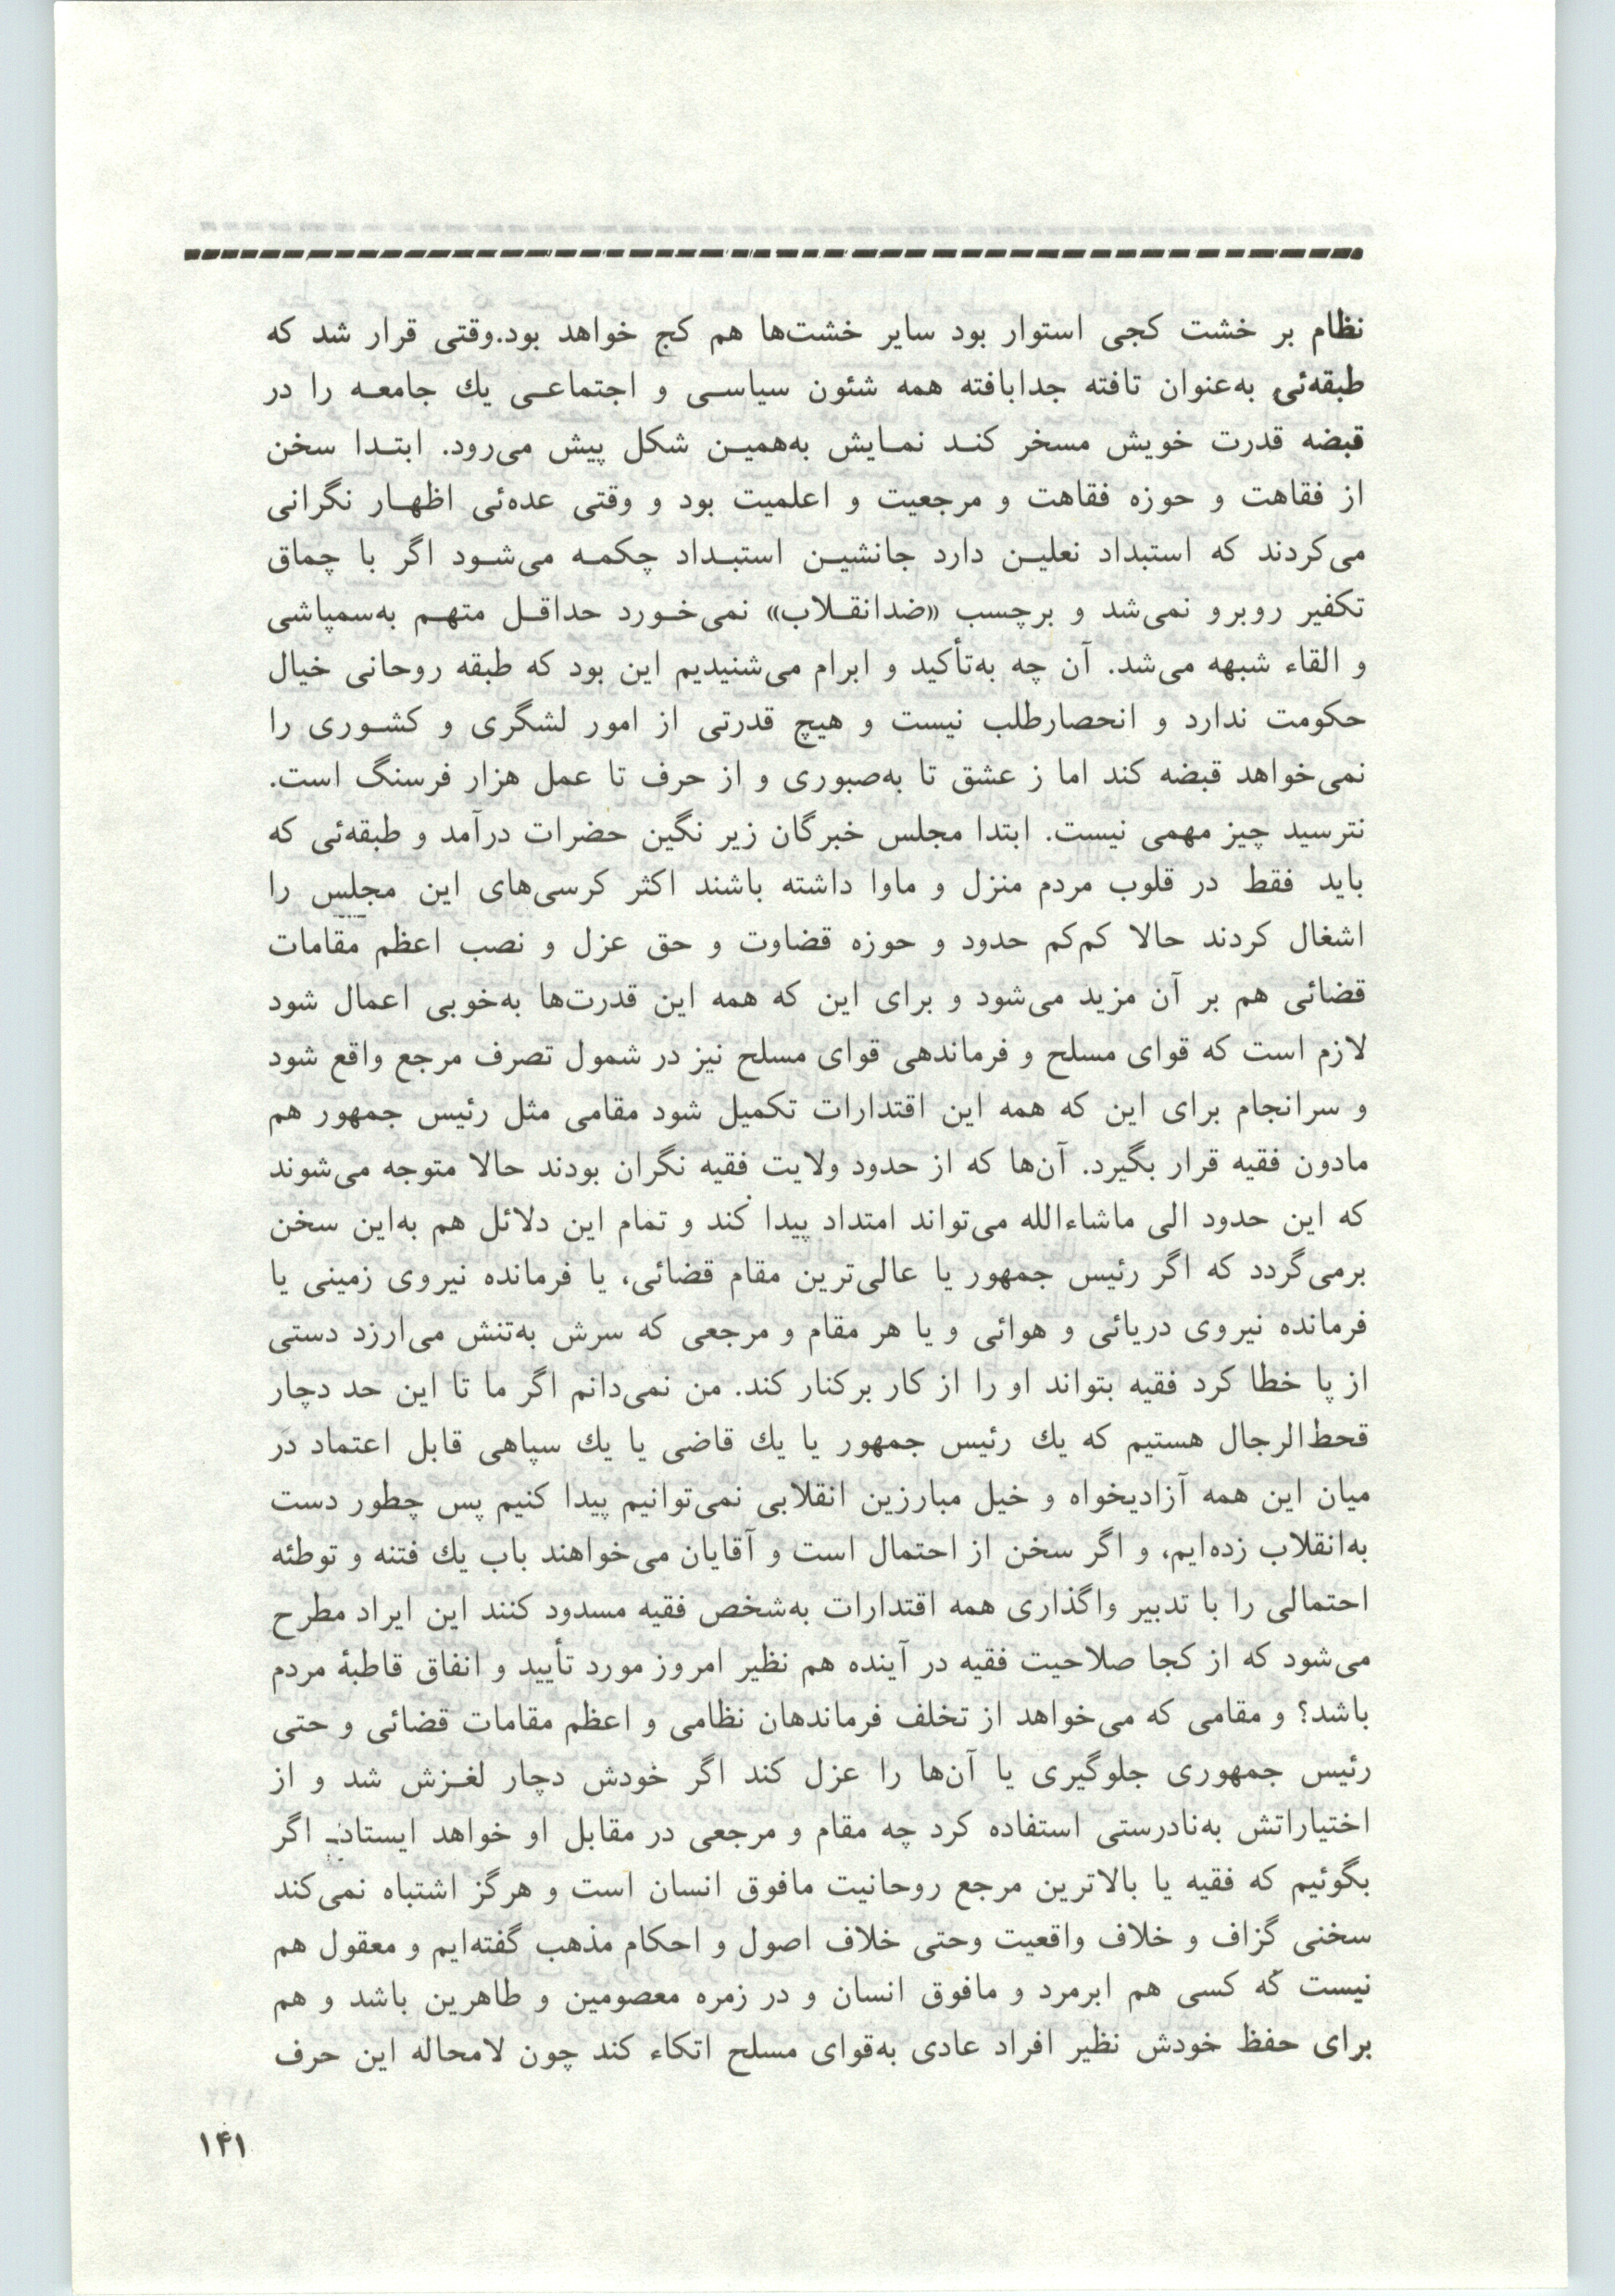 نظام بر خشت کجی استوار بود سایر خشت‌ها هم کج خواهد بود.وقتی قرار شد که
طبقه‌ئی به‌عنوان تافته جدابافته همه شئون سیاسی و اجتماعی یك جامعه را در
قبضه قدرت خویش مسخر کند نمایش به‌همین شکل پیش می‌رود. ابتدا سخن
از فقاهت و حوزه فقاهت و مرجعیت و اعلمیت بود و وقتی عده‌ئی اظهار نگرانی
می‌کردند که استبداد نعلین دارد جانشین استبداد چکمه می‌شود اگر با چماق
تکفیر روبرو نمی‌شد و برچسب «ضدانقلاب» نمی‌خورد حداقل متهم به‌سمپاشی
و القاء شبهه می‌شد. آن چه به‌تأکید و ابرام می‌شنیدیم این بود که طبقه روحانی خیال
حکومت ندارد و انحصارطلب نیست و هیچ قدرتی از امور لشگری و کشوری را
نمی‌خواهد قبضه کند اما ز عشق تا به‌صبوری و از حرف تا عمل هزار فرسنگ است.
نترسید چیز مهمی نیست. ابتدا مجلس خبرگان زیر نگین حضرات درآمد و طبقه‌ئی که
باید فقط در قلوب مردم منزل و ماوا داشته باشند اکثر کرسی‌های این مجلس را
اشغال کردند حالا کم‌کم حدود و حوزه قضاوت و حق عزل و نصب اعظم مقامات
قضائی هم بر آن مزید می‌شود و برای این که همه این قدرت‌ها به‌خوبی اعمال شود
لازم است که قوای مسلح و فرماندهی قوای مسلح نیز در شمول تصرف مرجع واقع شود
و سرانجام برای این که همه این اقتدارات تکمیل شود مقامی مثل رئیس جمهور هم
مادون فقیه قرار بگیرد. آن‌ها که از حدود ولایت فقیه نگران بودند حالا متوجه می‌شوند
که این حدود الی ماشاءالله می‌تواند امتداد پیدا کند و تمام این دلائل هم به‌این سخن
برمی‌گردد که اگر رئیس جمهور یا عالی‌ترین مقام قضائی، یا فرمانده نیروی زمینی یا
فرمانده نیروی دریائی و هوائی و یا هر مقام و مرجعی که سرش به‌تنش می‌ارزد دستی
از پا خطا کرد فقیه بتواند او را از کار برکنار کند. من نمی‌دانم اگر ما تا این حد دچار
قحط‌الرجال هستیم که یك رئیس جمهور یا یك قاضی یا یك سپاهی قابل اعتماد در
میان این همه آزادیخواه و خیل مبارزین انقلابی نمی‌توانیم پیدا کنیم پس چطور دست
به‌انقلاب زده‌ایم، و اگر سخن از احتمال است و آقایان می‌خواهند باب یك فتنه و توطئه
احتمالی را با تدبیر واگذاری همه اقتدارات به‌شخص فقیه مسدود کنند این ایراد مطرح
می‌شود که از کجا صلاحیت فقیه در آینده هم نظیر امروز مورد تأیید و انفاق قاطبهٔ مردم
باشد؟ و مقامی که می‌خواهد از تخلف فرماندهان نظامی و اعظم مقامات قضائی و حتی
رئیس جمهوری جلوگیری یا آن‌ها را عزل کند اگر خودش دچار لغزش شد و از
اختیاراتش به‌نادرستی استفاده کرد چه مقام و مرجعی در مقابل او خواهد ایستاد، اگر
بگوئیم که فقیه یا بالاترین مرجع روحانیت مافوق انسان است و هرگز اشتباه نمی‌کند
سخنی گزاف و خلاف واقعیت وحتی خلاف اصول و احکام مذهب گفته‌ایم و معقول هم
نیست که کسی هم ابرمرد و مافوق انسان و در زمره معصومین و طاهرین باشد و هم
برای حفظ خودش نظیر افراد عادی به‌قوای مسلح اتکاء کند چون لامحاله این حرف
۱۴۱